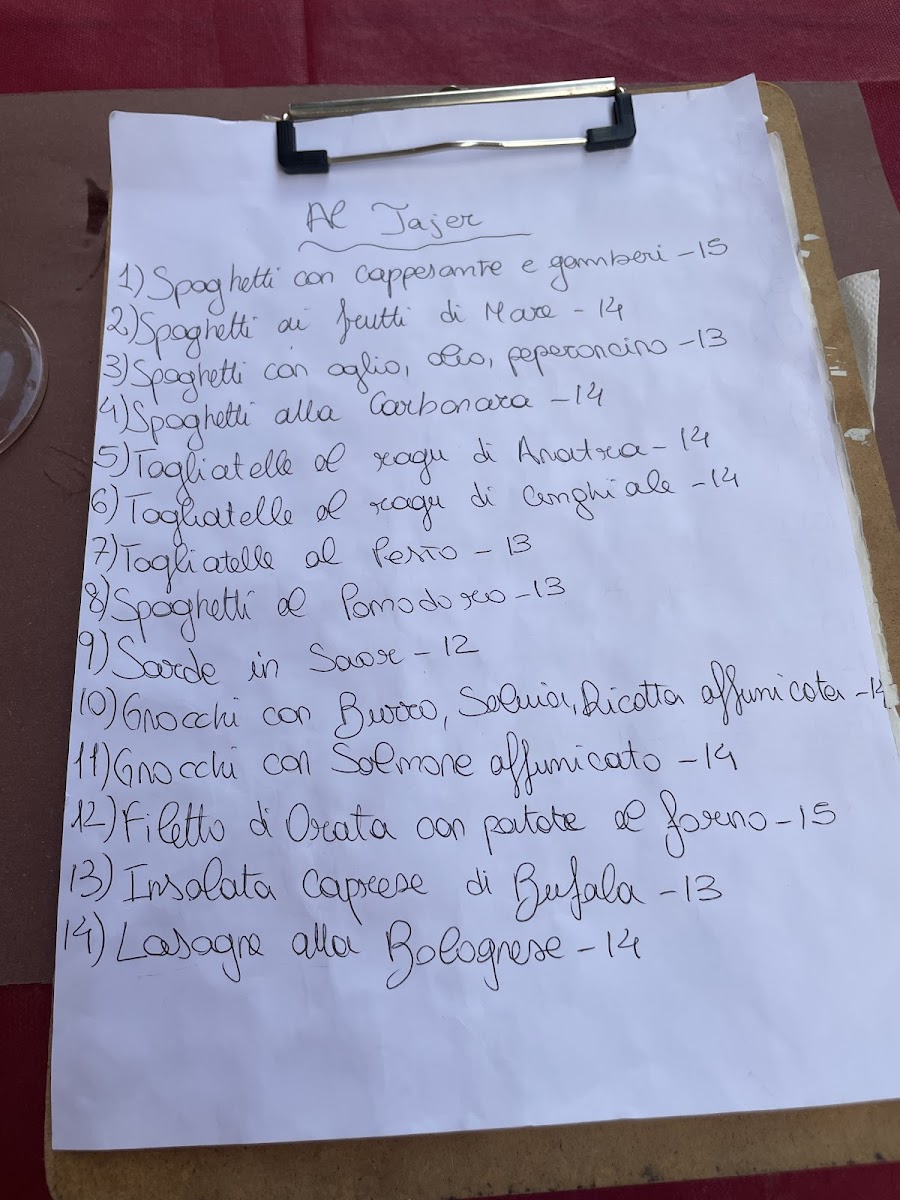 Al Tajer
1) Spaghetti con cappesante e gamberi - 15
2) Spaghetti ai frutti di Mare - 14
3) Spaghetti con aglio, olio, peperoncino - 13
4) Spaghetti alla Carbonara - 14
5) Tagliatelle al ragu di Anatra - 14
6) Tagliatelle al ragu di Cinghiale - 14
7) Tagliatelle al Pesto - 13
8) Spaghetti al Pomodoro - 13
9) Sarde in Saor - 12
10) Gnocchi con Burro, Salvia, Ricotta affumicata - 14
11) Gnocchi con Salmone affumicato - 14
12) Filetto di Orata con patate al forno - 15
13) Insalata caprese di Bufala - 13
14) Lasagne alla Bolognese - 14